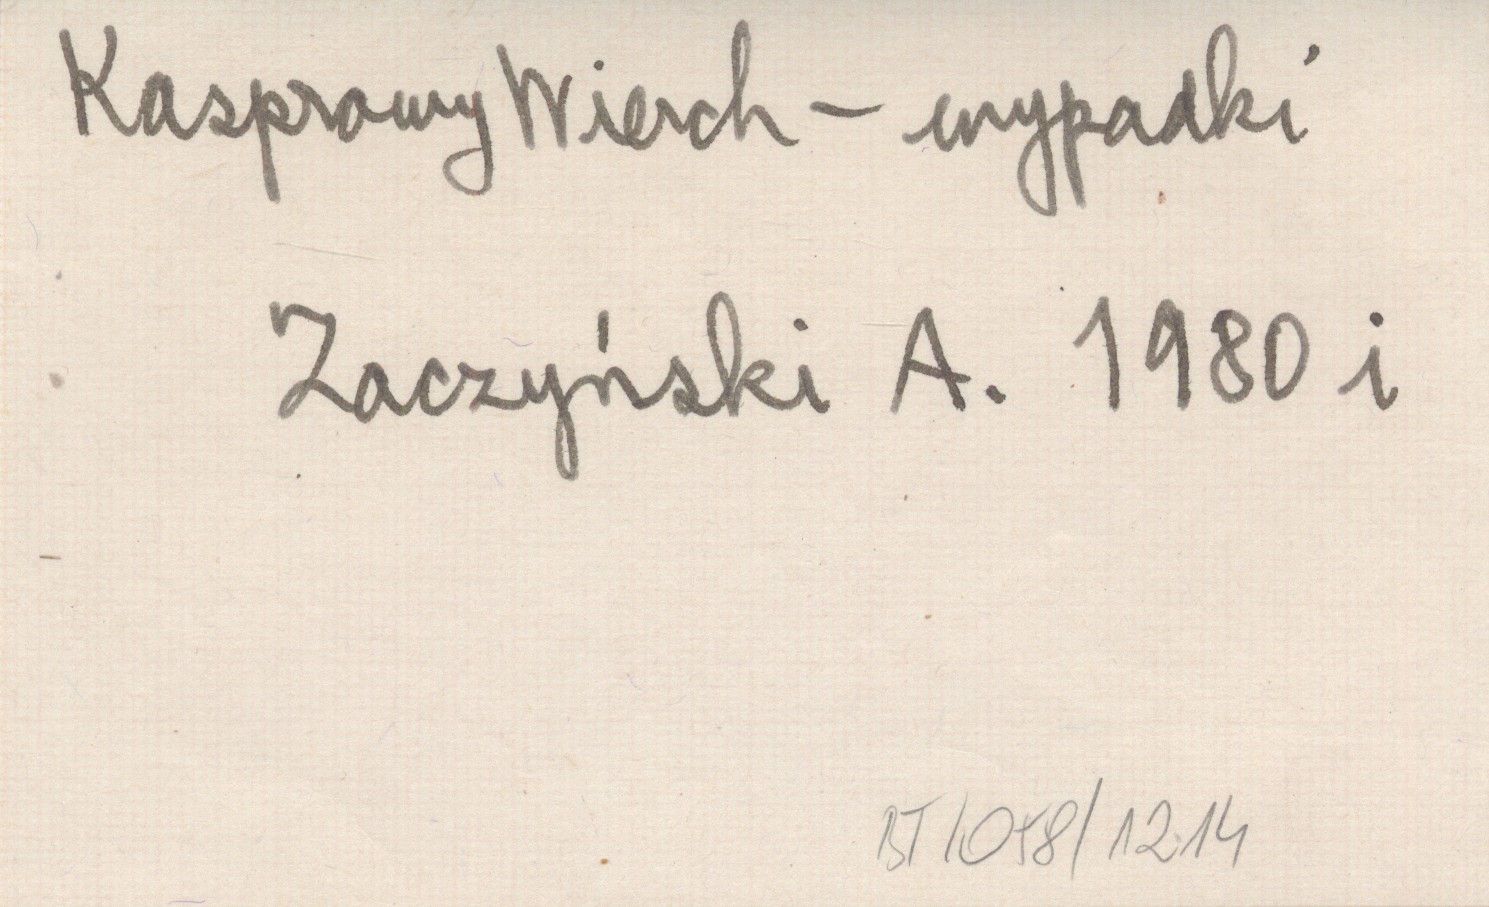 Kasprowy Wierch – wypadki
Zaczyński A. 1980 i
BT/058/1214